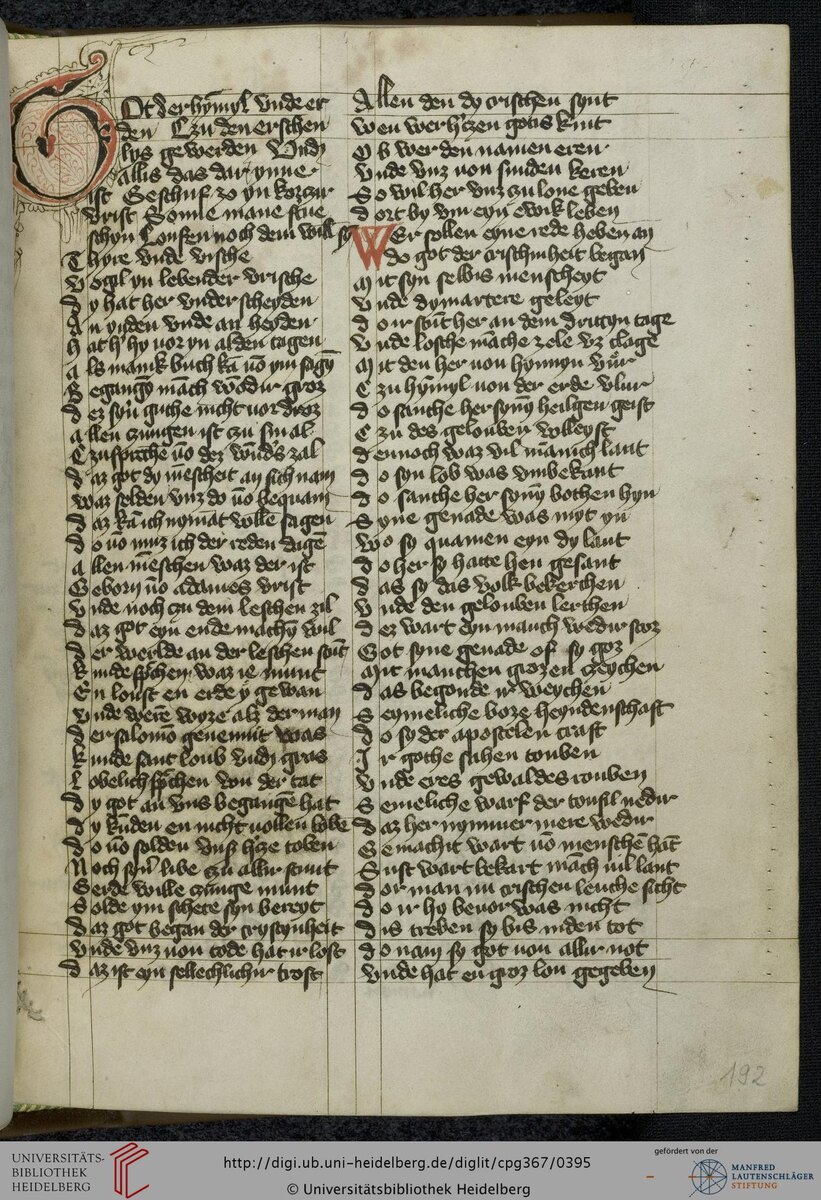 Got der hymyl vnde er
den Czu den erschen
lys gewerden Vndy
allis das dar ynne
ist Geschuf zo yn korczer
vrist Sonne mane
schyn Loufen noch dem will sy
Thyre vnde vische
Vogil yn lebender vrische
Dy hat her vnderscheyden
An yuden vnde an heyden
hat h' hy vor yn alden tagen
als manik buch kā vō ym sagȳ
Begangȳ māch wōdur groz
dez syn guthe nicht vordroz
allen czungen ist czu smal
Czu spreche vō dez wūds zal
daz got dy mēscheit an sich nam
waz selden vnz do vō bequam
daz kā ich nymāt volle sagen
do vō muz ich der reden dagē
allen mēschen waz der ist
Geborn vō adames vrist
vnde noch czu dem leschen zil
daz got eyn ende machȳ wil
der werlde an der leschen stūt
Kunde sp̄chen waz ie munt
En loust en erde y gewan
vnde werē wyze alz der man
der salomō genennit was
Kunde sant loub vndȳ gras
Lobelich sp̄chen von der tat
dy got an vns begangē hat
dy kūden en nicht vollen lobe
do vō solden vnß h'ze toben
Noch synˀ libe czu allir stunt
Gerde wille czunge munt
Solde ym stete syn bereyt
daz got began der crystynheit
vnde vnz von tode hat ir lost
daz ist eyn sellechlichir trost
Allen den dy cristchen synt
wen wer h'izen gotis kint
Ob wer den namen eren
vnde vnz von sunden keren
So wil her vnz czu lone geben
dort by ym eyn ewik leben
Wer sollen eyne rede heben an
do got der cristinheit began
Mit syn selbis menscheyt
vnde dy martere geleyt
do ir stūt her an dem drittyn tage
vnde losche māche zele vz clage
Mit den her von hynnyn vuͦr
Czu hȳmyl von der erde vlur
do sanche her synȳ heilgen geist
Czu des gelouben volleyst
dennoch waz vil mānich lant
do syn lob was vnbekant
do sanche her synȳ bothen hyn
Syne genade was myt yn
wo sy quamen eyn dy lant
do her sy hatte hen gesant
das sy das volk bekerchen
vnde den gelouben lerthen
dez wart eyn manch wedur stoz
Got syne genade of sy goz
Mit manchen grozen czeychen
das begonde ir weychen
Semeliche boze heyndenschaft
do sy der apostelen craft
Ir gothe sahen touben
vnde eres gewaldes rouben
Semeliche warf der toufil nedir
daz her nymmer mere wedir
Gemachit wart vō menschē hāt
Sust wart bekart māch vil lant
dor man nu cristchen leuthe sicht
do ir hy bevor was nicht
dis treben sy bis in den tot
do nam sy got von allir not
vnde hat en groz lon gegeben
192
UNIVERSITÄTS-
BIBLIOTHEK
HEIDELBERG
http://digi.ub.uni-heidelberg.de/diglit/cpg367/0395
© Universitätsbibliothek Heidelberg
gefördert von der
MANFRED
LAUTENSCHLÄGER
STIFTUNG